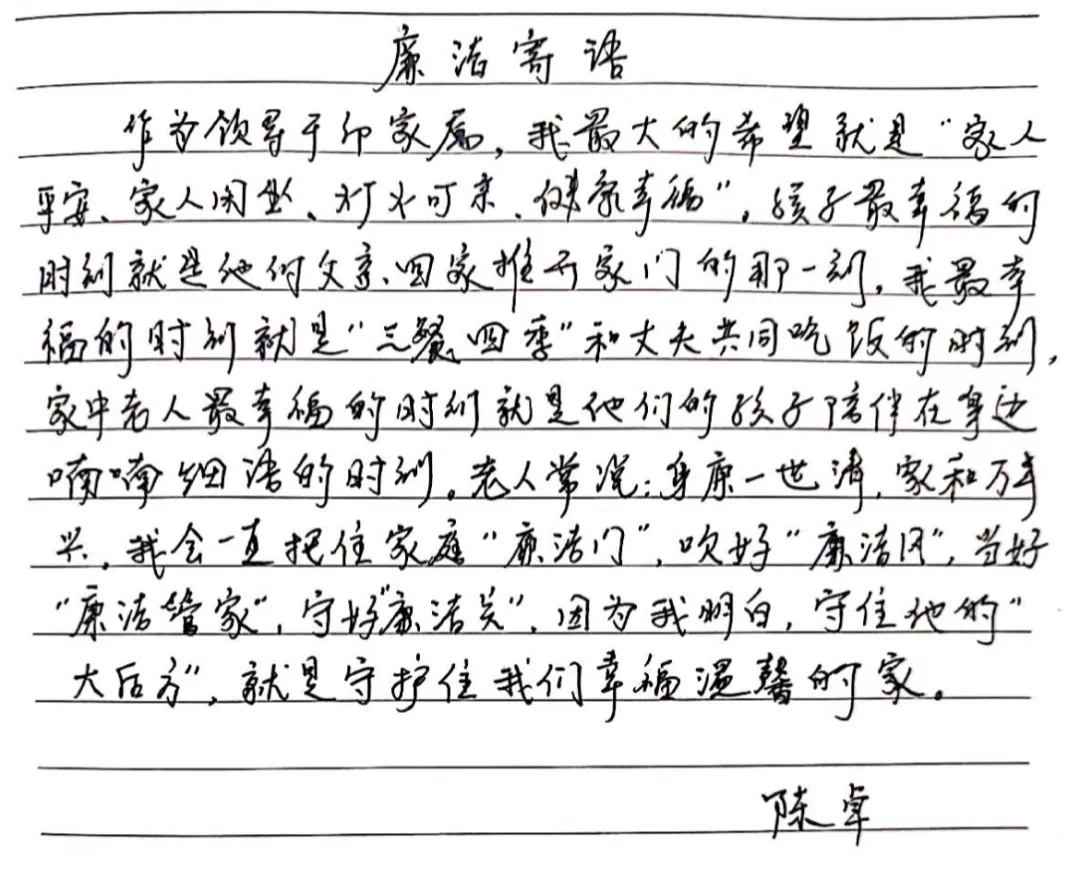 廉洁寄语
作为领导干部家属，我最大的希望就是“家人
平安、家人闲坐、灯火可亲、健康幸福”。孩子最幸福的
时刻就是他们父亲回家推开家门的那一刻，我最幸
福的时刻就是“三餐四季”和丈夫共同吃饭的时刻，
家中老人最幸福的时刻就是他们的孩子陪伴在身边
喃喃细语的时刻。老人常说：身廉一世清，家和万事
兴，我会一直把住家庭“廉洁门”，吹好“廉洁风”，当好
“廉洁管家”，守好“廉洁关”，因为我明白，守住他的“
大后方”，就是守护住我们幸福温馨的家。
陈卓